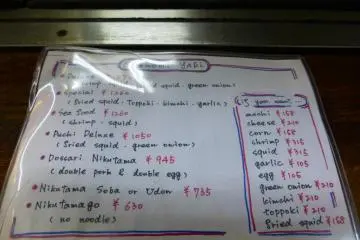 YAKI
squid · green onion)
• Special ¥ 1260
(fried squid · Toppoki · kimchi · garlic)
• Sea Food ¥ 1260
(shrimp · squid)
• Puchi Deluxe ¥ 1050
(fried squid · green onion)
• Dossari Nikutama ¥ 945
(double pork & double egg)
• Nikutama Soba or Udon ¥ 735
• Nikutamago ¥ 630
(no noodle)
If you want...
mochi ¥158
cheese ¥210
corn ¥158
shrimp ¥315
squid ¥315
garlic ¥105
egg ¥105
green onion ¥210
kimchi ¥210
toppoki ¥210
fried squid ¥158